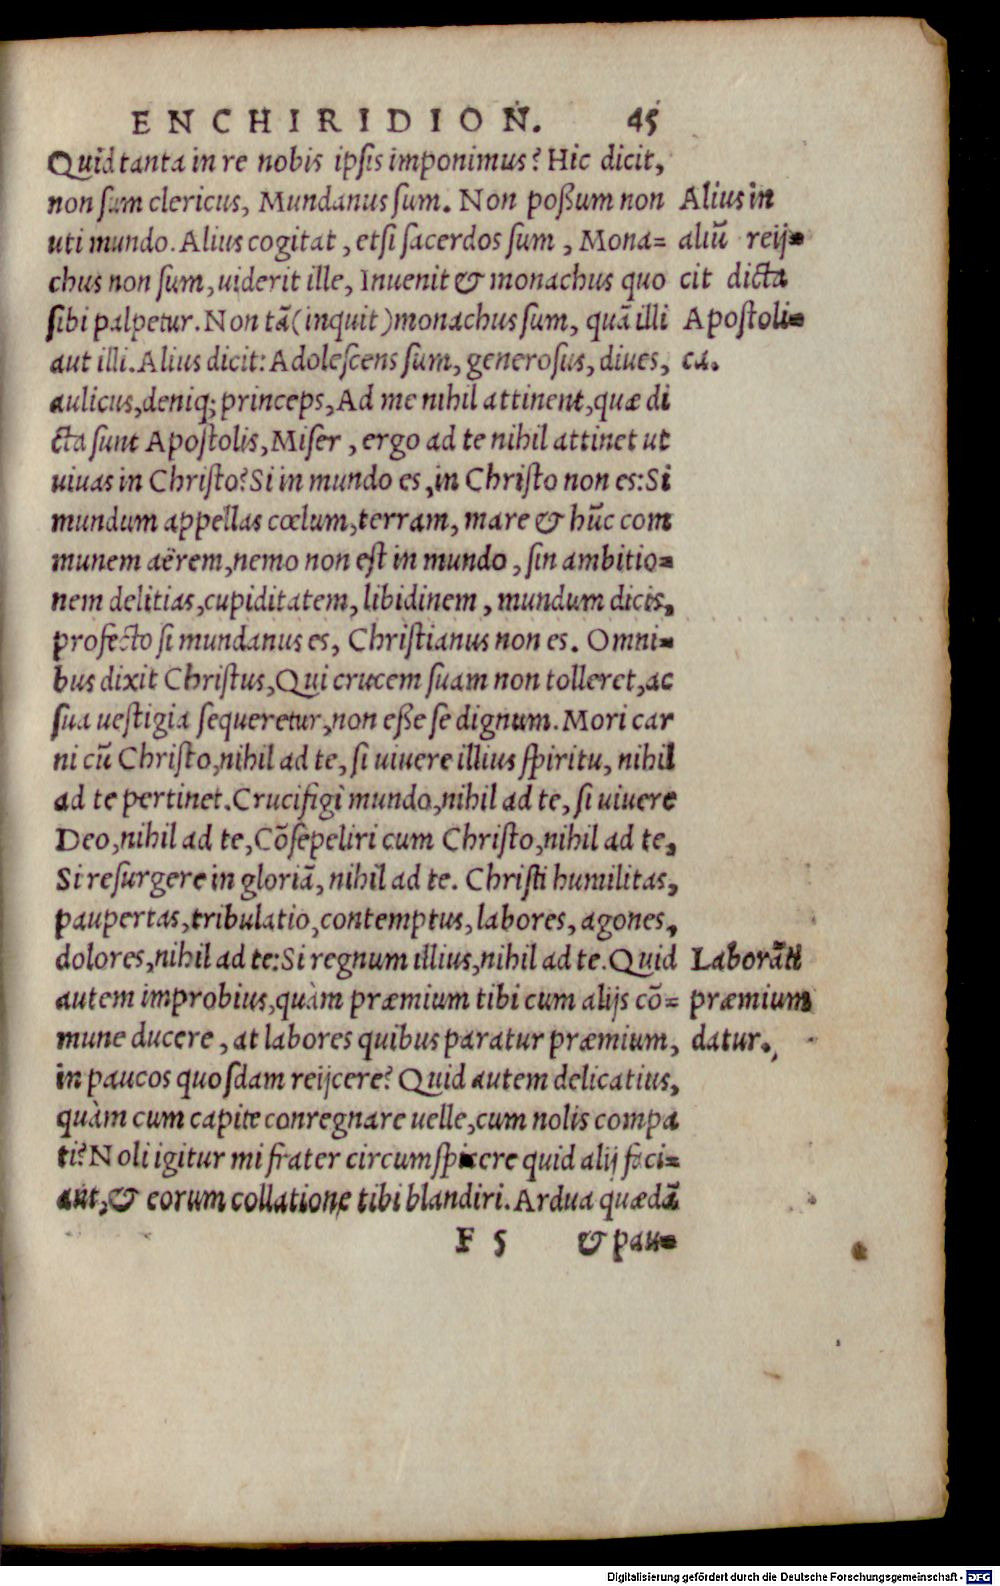 ENCHIRIDION. 45
Quid tanta in re nobis ipsis imponimus? Hic dicit,
non sum clericus, Mundanus sum. Non poßum non
uti mundo. Alius cogitat, etsi sacerdos sum, Mona=
chus non sum, uiderit ille, Inuenit & monachus quo
sibi palpetur. Non tã (inquit) monachus sum, quã illi
aut illi. Alius dicit: Adolescens sum, generosus, diues,
aulicus, deniq; princeps, Ad me nihil attinent, quæ di
cta sunt Apostolis, Miser, ergo ad te nihil attinet ut
uiuas in Christo? Si in mundo es, in Christo non es: Si
mundum appellas cœlum, terram, mare & hũc com
munem aërem, nemo non est in mundo, sin ambitio=
nem delitias, cupiditatem, libidinem, mundum dicis,
profecto si mundanus es, Christianus non es. Omni=
bus dixit Christus, Qui crucem suam non tolleret, ac
sua uestigia sequeretur, non eße se dignum. Mori car
ni cũ Christo, nihil ad te, si uiuere illius spiritu, nihil
ad te pertinet. Crucifigi mundo, nihil ad te, si uiuere
Deo, nihil ad te, Cõsepeliri cum Christo, nihil ad te,
Si resurgere in gloriã, nihil ad te. Christi humilitas,
paupertas, tribulatio, contemptus, labores, agones,
dolores, nihil ad te: Si regnum illius, nihil ad te. Quid
autem improbius, quàm præmium tibi cum alijs cõ=
mune ducere, at labores quibus paratur præmium,
in paucos quosdam reijcere? Quid autem delicatius,
quàm cum capite conregnare uelle, cum nolis compa
ti? Noli igitur mi frater circumspicere quid alij faci=
ant, & eorum collatione tibi blandiri. Ardua quædã
F 5 & pau=
Alius in
aliũ reij=
cit dicta
Apostoli=
ca.
Laborãti
præmium
datur.
Digitalisierung gefördert durch die Deutsche Forschungsgemeinschaft - DFG